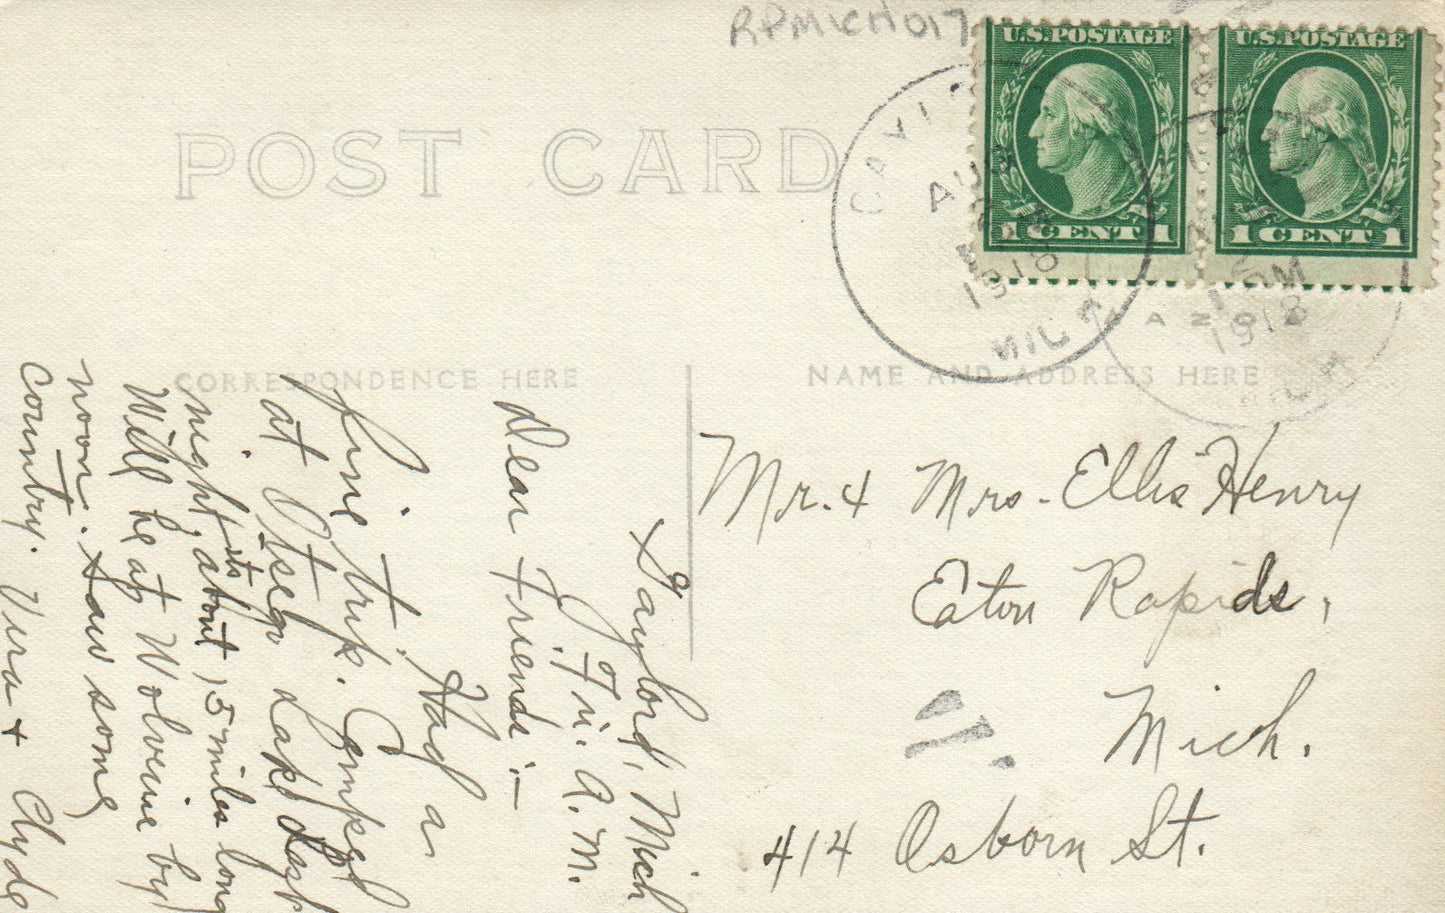 RPMICH017
U.S. POSTAGE
1 CENT 1
U.S. POSTAGE
1 CENT 1
AUG
1918
MICH
1918
POST CARD
CORRESPONDENCE HERE
NAME AND ADDRESS HERE
Gaylord, Mich
Fri. A.M.
Dear Friends:-
Had a
fine trip. Camped
at Otsego Lake last
night, its about 5 miles long
Will be at Wolverine by
noon. Saw some
country. Vera + Clyde
Mr. & Mrs. Ellis Henry
Eaton Rapids,
Mich.
414 Osborn St.